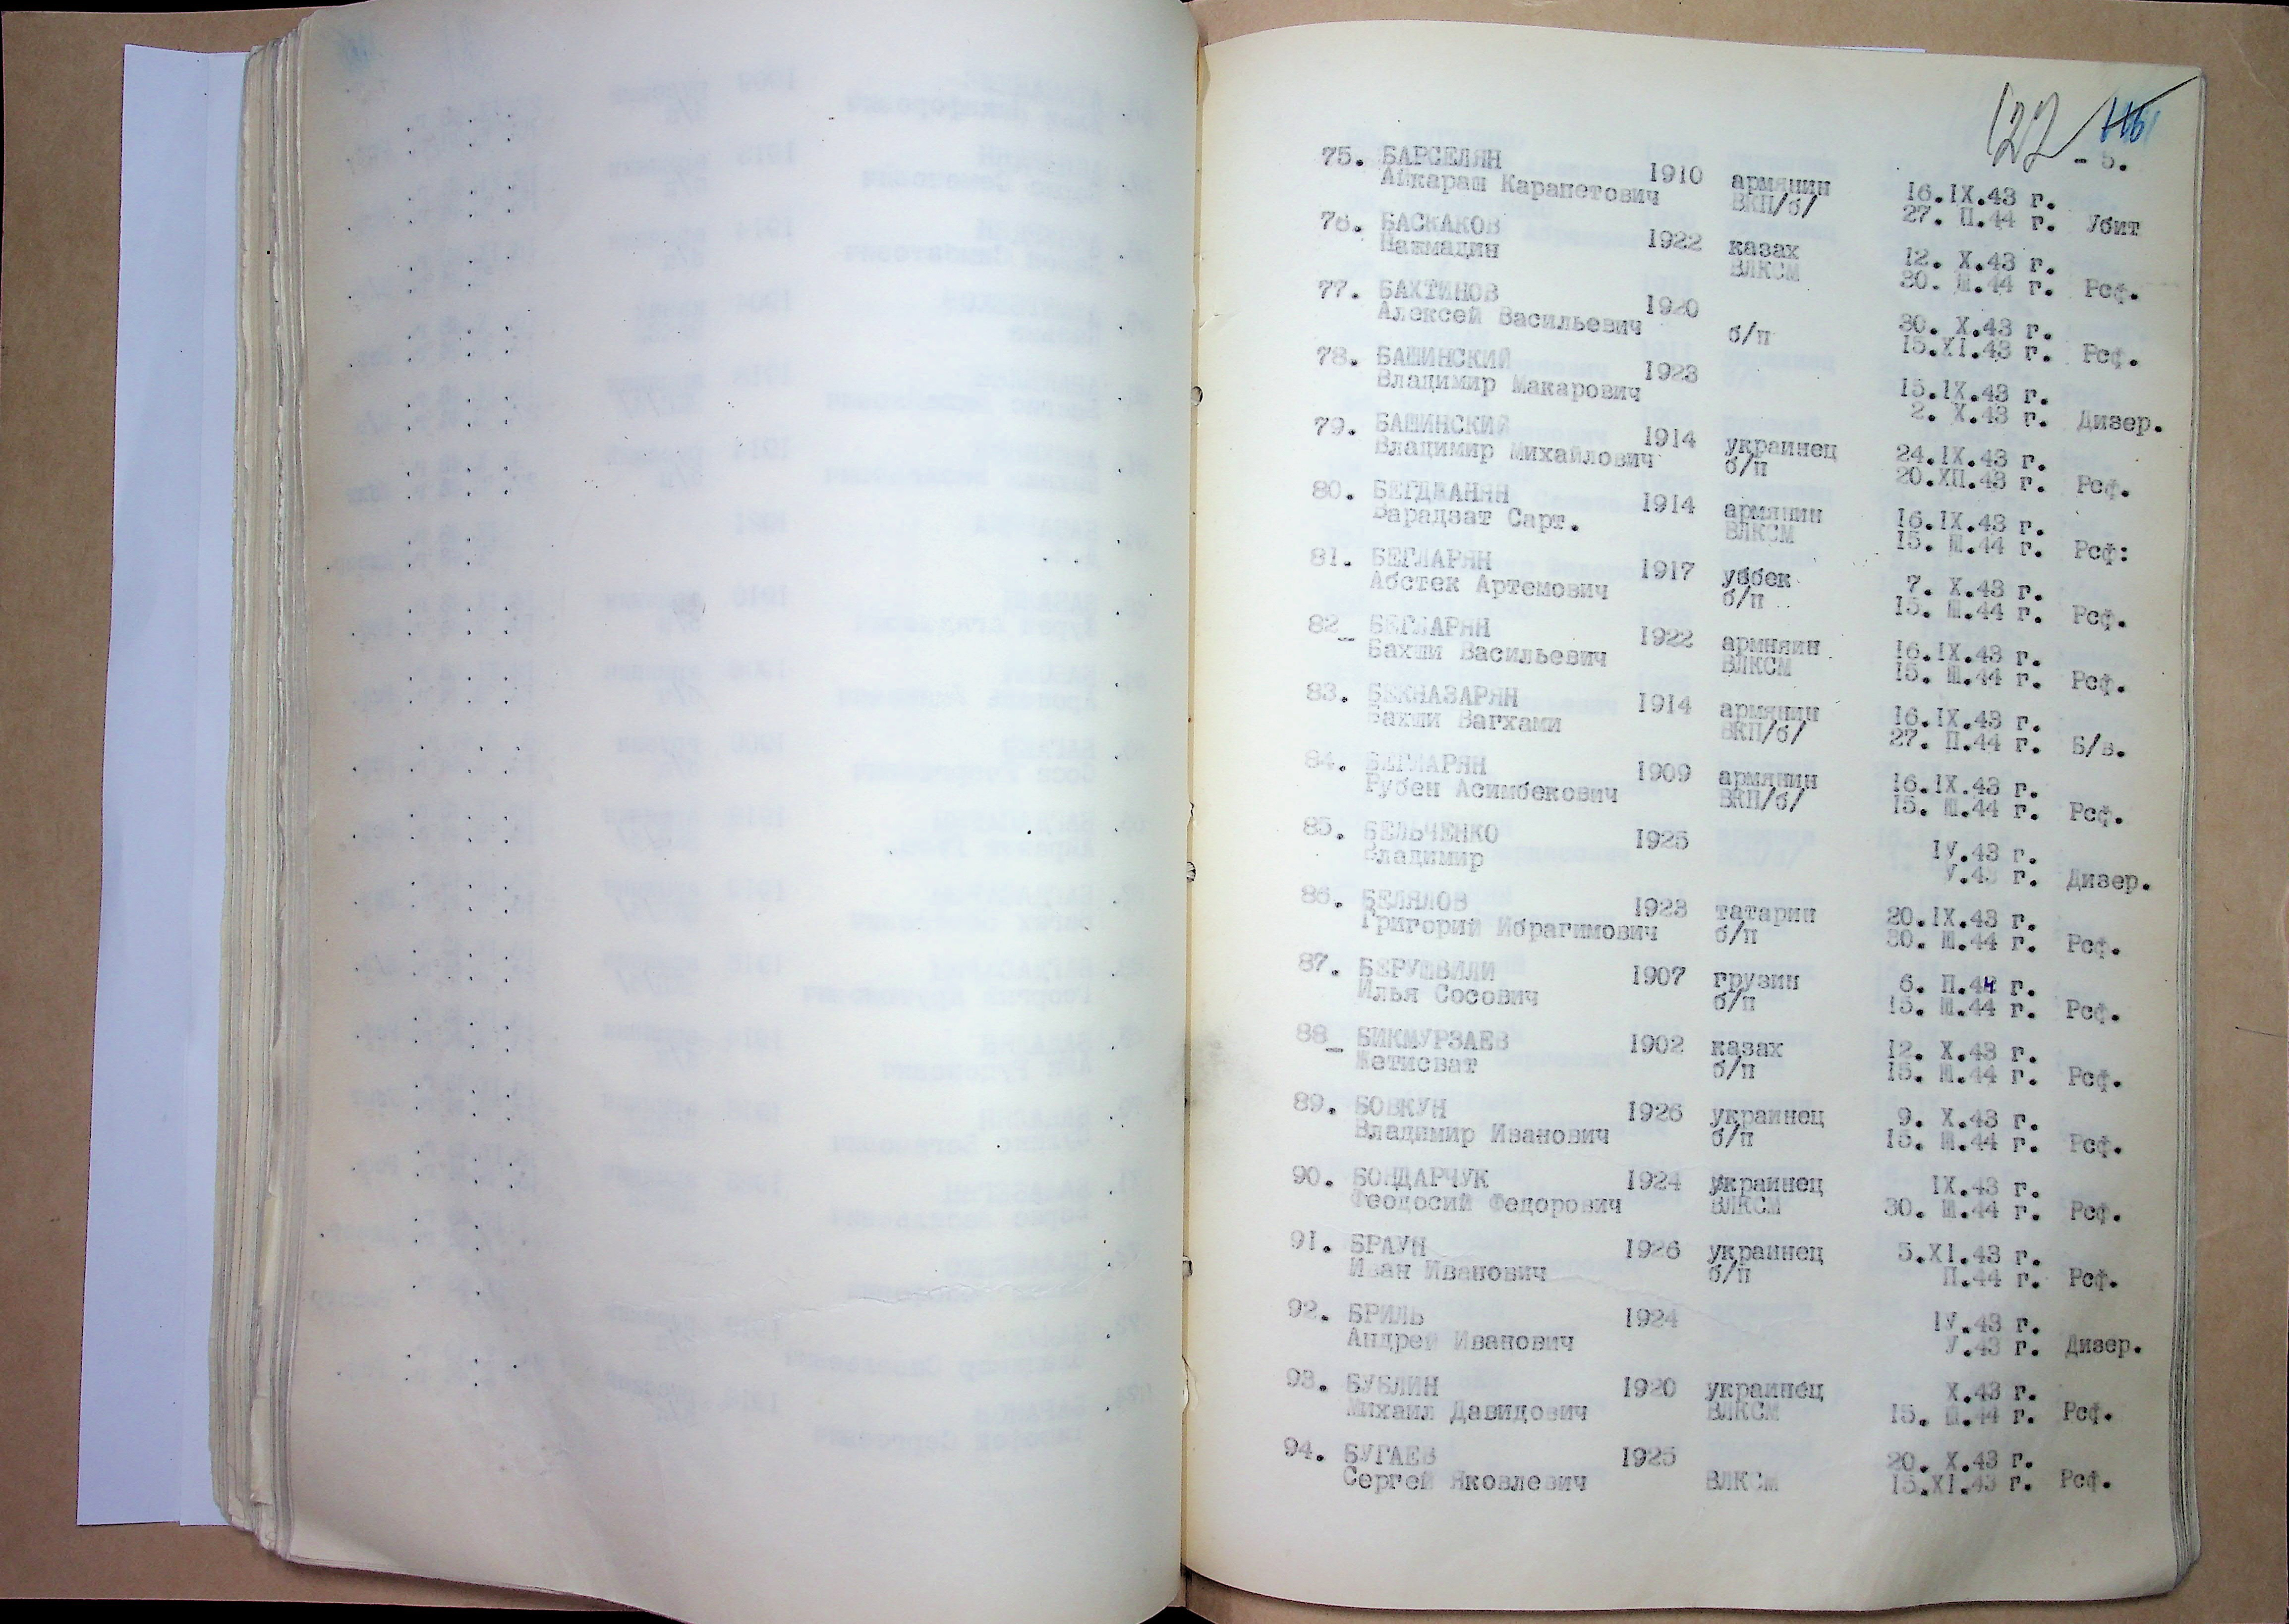 127 116
- 5.
75. БАРСЕЛЯН 1910 армянин 16.IX.43 г.
Айкарам Карапетович ВКП/б/ 27. П.44 г. Убит
76. БАСКАКОВ 1922 казах 12. X.43 г.
Нажмадин ВЛКСМ 30. Ш.44 г. Рсф.
77. БАХТИНОВ 1920 30. X.43 г.
Алексей Васильевич б/п 15.XI.43 г. Рсф.
78. БАШИНСКИЙ 1923 15.IX.43 г.
Владимир Макарович 2. X.43 г. Дизер.
79. БАШИНСКИЙ 1914 украинец 24.IX.43 г.
Владимир Михайлович б/п 20.ХП.43 г. Рсф.
80. БЕГДЖАНЯН 1914 армянин 16.IX.43 г.
Варадзат Сарт. ВЛКСМ 15. Ш.44 г. Рсф:
81. БЕГЛАРЯН 1917 узбек 7. X.43 г.
Абстек Артемович б/п 15. Ш.44 г. Рсф.
82_ БЕГЛАРЯН 1922 армняин 16.IX.43 г.
Бахши Васильевич ВЛКСМ 15. Ш.44 г. Рсф.
83. БЕКНАЗАРЯН 1914 армянин 16.IX.43 г.
Бахши Вагхами ВКП/б/ 27. П.44 г. Б/в.
84. БЕГЛАРЯН 1909 армянин 16.IX.43 г.
Рубен Асимбекович ВКП/б/ 15. Ш.44 г. Рсф.
85. БЕЛЬЧЕНКО 1925 IУ.43 г.
Владимир У.43 г. Дизер.
86. БЕЛЯЛОВ 1923 татарин 20.IX.43 г.
Григорий Ибрагимович б/п 30. Ш.44 г. Рсф.
87. БЕРУШВИЛИ 1907 грузин 6. П.44 г.
Илья Сосович б/п 15. Ш.44 г. Рсф.
88_ БИКМУРЗАЕВ 1902 казах 12. X.43 г.
Жетисват б/п 15. Ш.44 г. Рсф.
89. БОВКУН 1926 украинец 9. X.43 г.
Владимир Иванович б/п 15. Ш.44 г. Рсф.
90. БОНДАРЧУК 1924 украинец IX.43 г.
Феодосий Федорович ВЛКСМ 30. Ш.44 г. Рсф.
91. БРАУН 1926 украинец 5.XI.43 г.
Иван Иванович б/п П.44 г. Рсф.
92. БРИЛЬ 1924 IУ.43 г.
Андрей Иванович У.43 г. Дизер.
93. БУБЛИН 1920 украинец X.43 г.
Михаил Давидович ВЛКСМ 15. Ш.44 г. Рсф.
94. БУГАЕВ 1925 20. X.43 г.
Сергей Яковлевич ВЛКСМ 15.XI.43 г. Рсф.